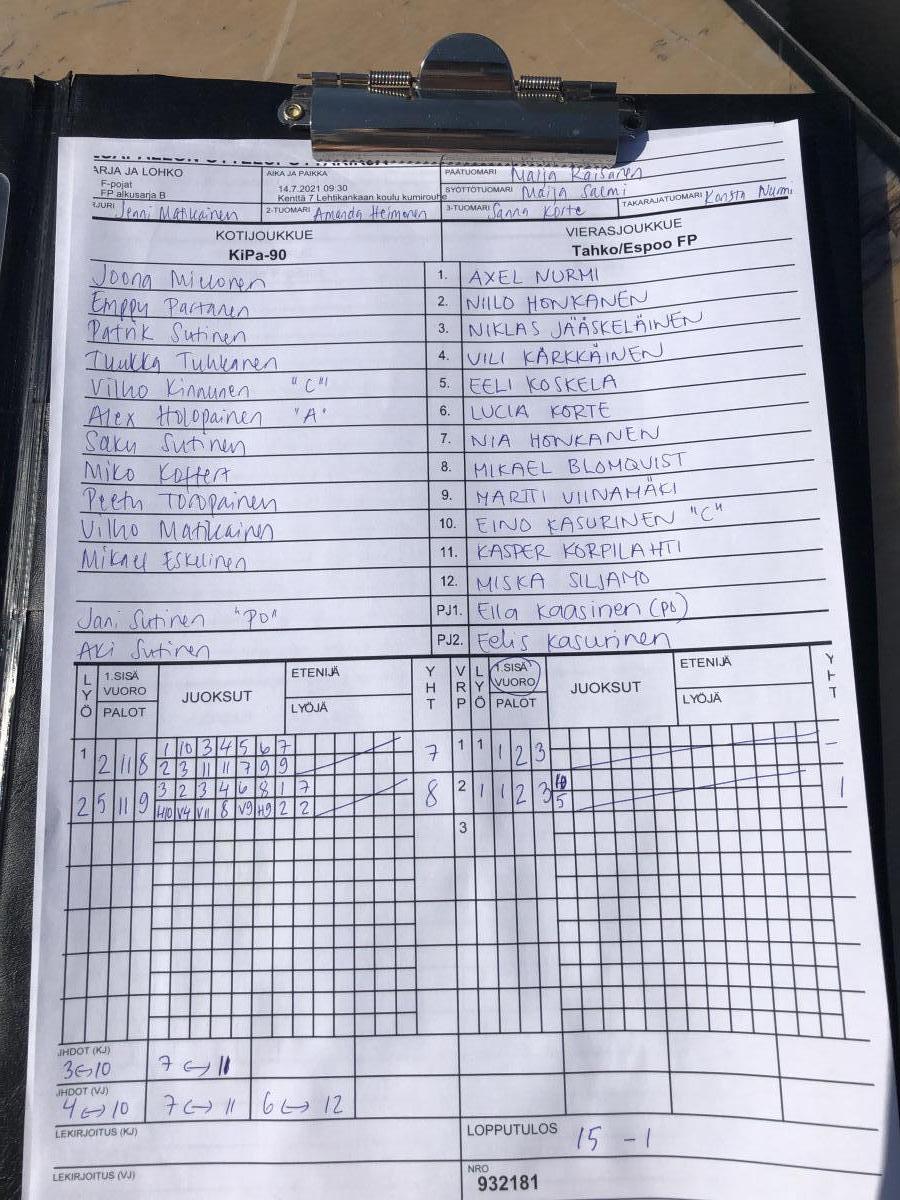 ARJA JA LOHKO
F-pojat
FP alkusarja B
AIKA JA PAIKKA
14.7.2021 09:30
Kenttä 7 Lehtikankaan koulu kumirouhe
PÄÄTUOMARI Maija Räisänen
SYÖTTÖTUOMARI Maija Salmi
JURI Jenni Matikainen 2-TUOMARI Amanda Heimonen 3-TUOMARI Sanna Korte TAKARAJATUOMARI Konsta Nurmi
KOTIJOUKKUE VIERASJOUKKUE
KiPa-90 Tahko/Espoo FP
Joona 1. AXEL NURMI
Emppu Partanen 2. NIILO HONKANEN
Patrik Sutinen 3. NIKLAS JÄÄSKELÄINEN
Tuukka Tuhkanen 4. VILI KÄRKKÄINEN
Vilho Kinnunen "C" 5. EELI KOSKELA
Alex Holopainen "A" 6. LUCIA KORTE
Saku Sutinen 7. NIA HONKANEN
Miko 8. MIKAEL BLOMQVIST
Peetu Toropainen 9. MARTTI VIINAMÄKI
Vilho Matikainen 10. EINO KASURINEN "C"
Mikael Eskelinen 11. KASPER KORPILAHTI
12. MISKA SILJAMO
Jani Sutinen "PO" PJ1. Ella Kaasinen (PO)
Aki Sutinen PJ2. Eelis Kasurinen
LYÖ 1.SISÄ VUORO PALOT JUOKSUT ETENIJÄ LYÖJÄ YHT VRP LYÖ 1.SISÄ VUORO PALOT JUOKSUT ETENIJÄ LYÖJÄ YHT
1 2 11 8 1 10 3 4 5 6 7 7 1 1 1 2 3 -
2 3 11 11 7 9 9
2 5 11 9 3 2 3 4 6 8 1 7 8 2 1 1 2 3 10 1
H10 V4 V11 8 V9 H9 2 2 5
3
JHDOT (KJ)
3↔10 7↔11
JHDOT (VJ)
4↔10 7↔11 6↔12
LEKIRJOITUS (KJ) LOPPUTULOS 15 -1
LEKIRJOITUS (VJ) NRO
932181